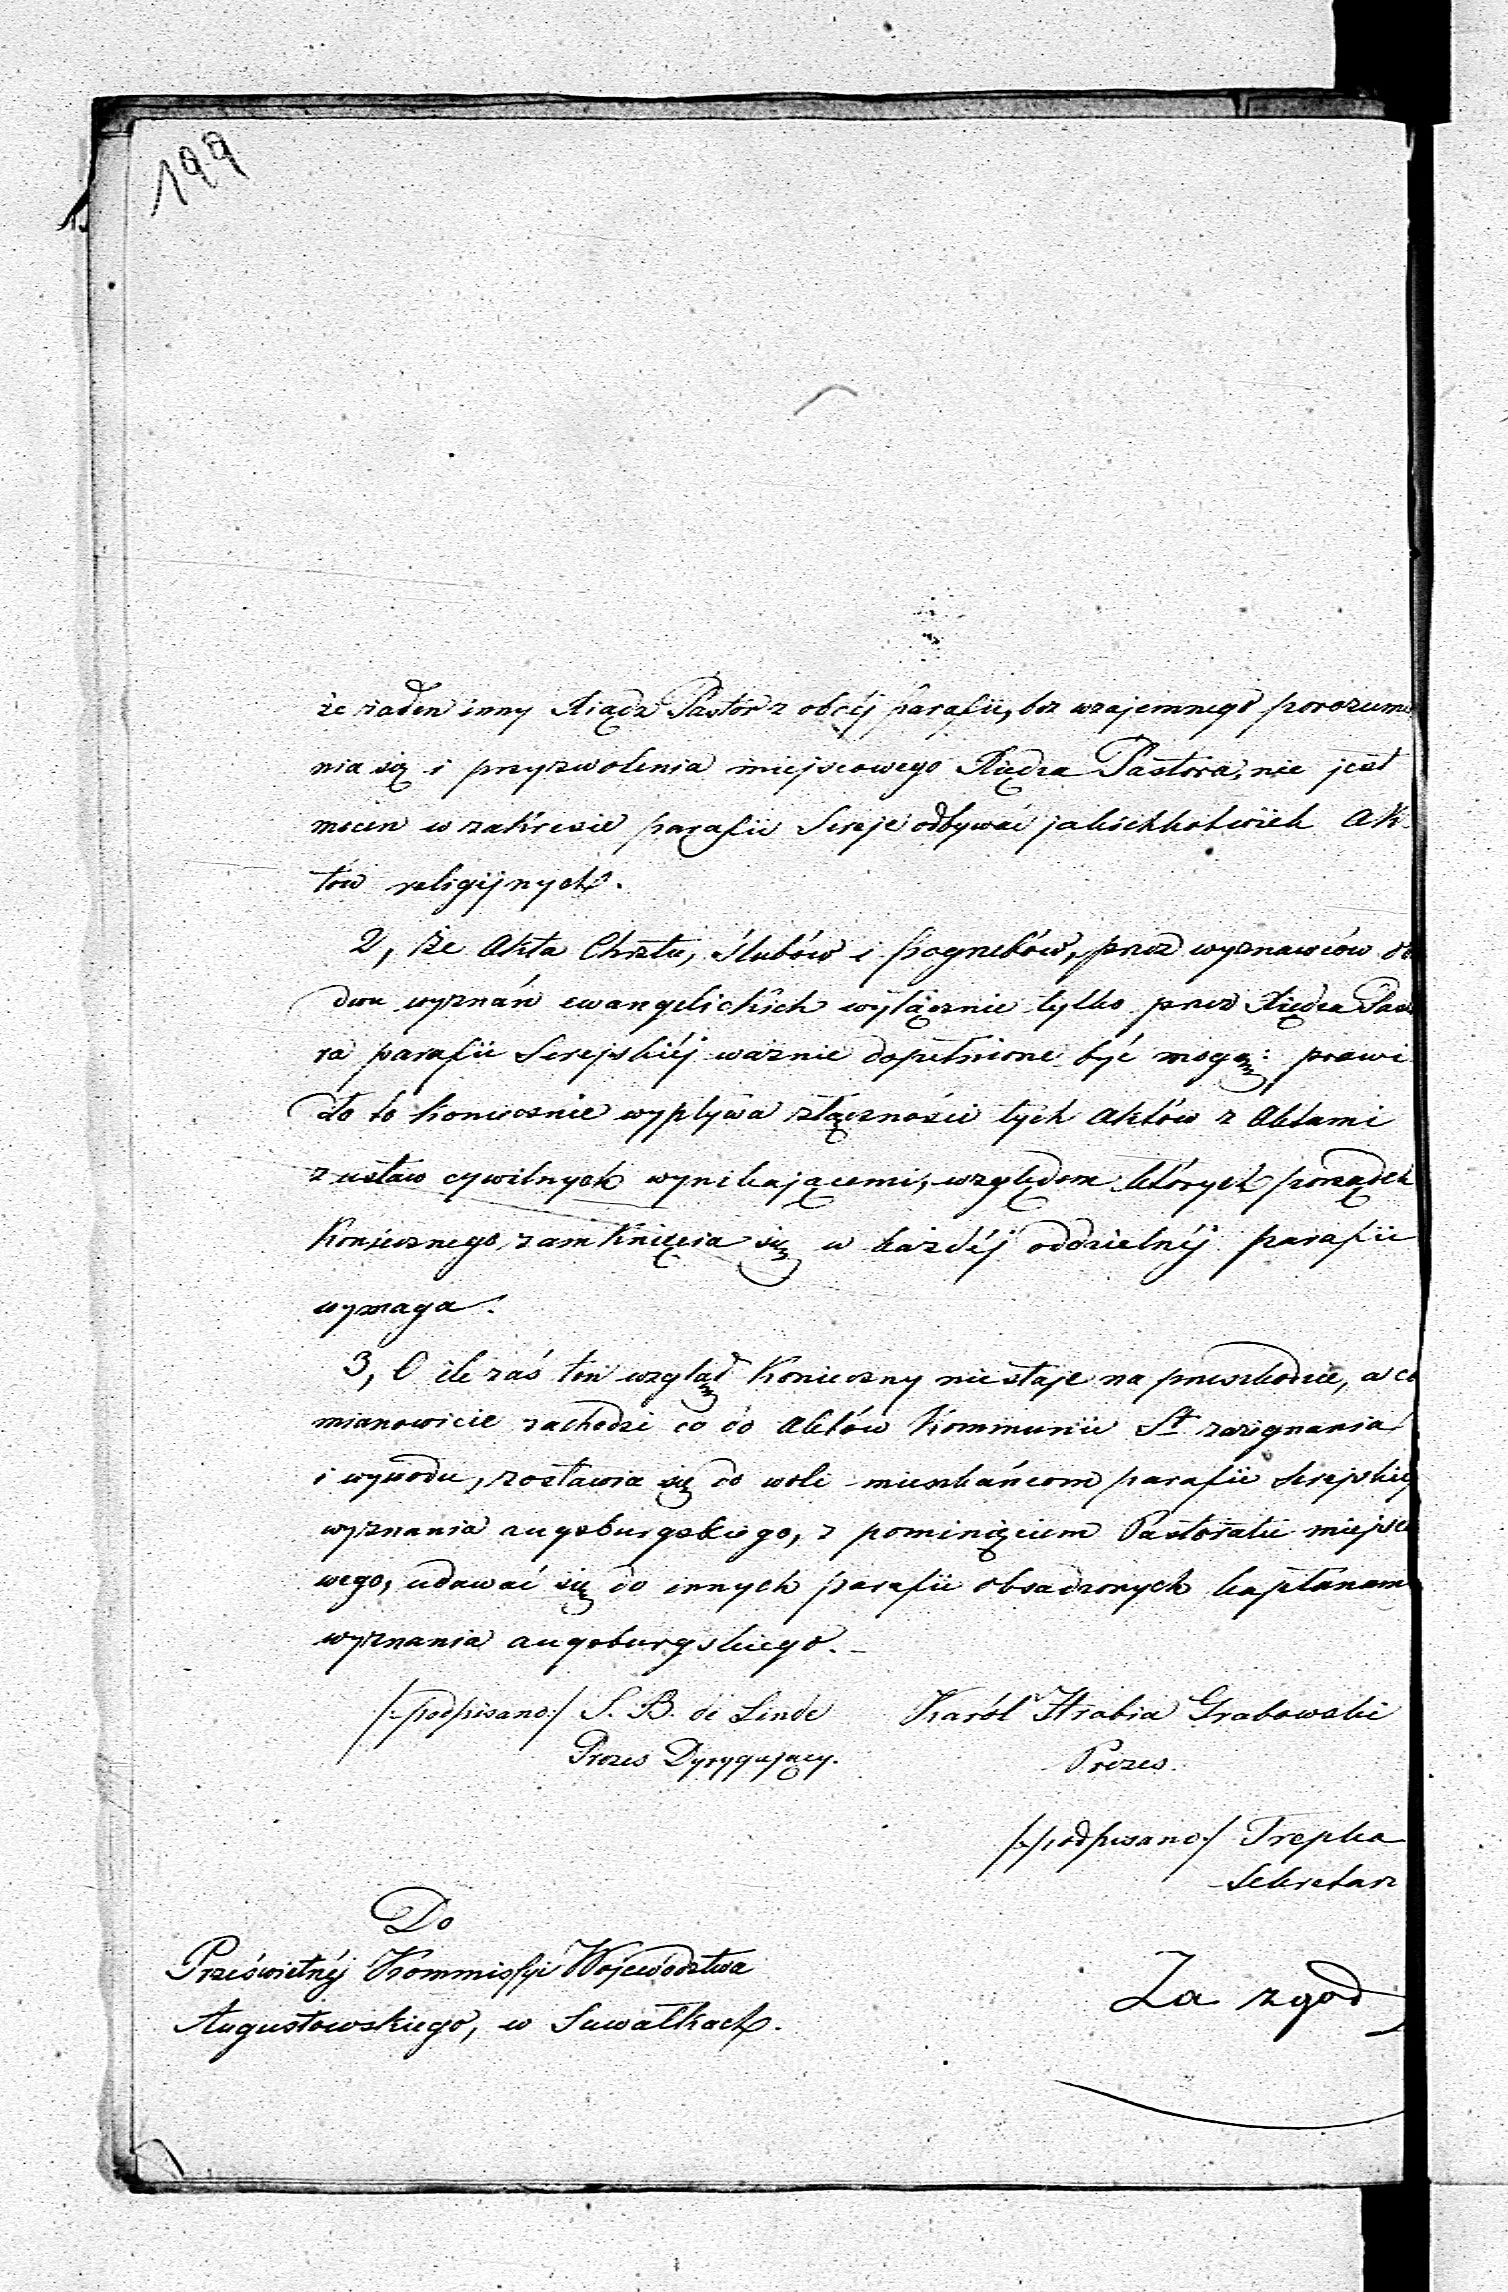 199
że żaden inny Xiądz Pastor z obcéj parafii, bez wzajemnego porozumie
nia się i przyzwolenia miejscowego Xiędza Pastora, nie jest
mocen w zakresie parafii Sereje odbywać jakichkolwiek Ak-
tów religijnych.
2, że Akta Chrztu, ślubów i pogrzebów, przez wyznawców o
dwu wyznań ewangelickich wyłącznie tylko przez Xiędza Pasto
ra parafii Serejskiéj ważnie dopełnione być mogą: prawi
dło to koniecznie wypływa złączności tych Aktów z Aktami
z ustaw cywilnych wynikającemi, względem których porządek
koniecznego zamknięcia się w każdéj oddzielnéj parafii
wymaga.
3, O ile zaś ten wzgląd konieczny niestaje na przeszkodzie, a co
mianowicie zachodzi co do Aktów Kommunii St. zażegnania
i wywodu, zostawia się do woli mieszkańcom parafii Serejskiej
wyznania augsburgskiego, z pominięciem Pastoratu miejsco
wego, udawać się do innych parafii obsadzonych kapłanam
wyznania augsburgskiego.
/:podpisano:/ S. B. de Linde Karól Hrabia Grabowski
Prezes Dyrygujący. Prezes.
/:podpisano:/ Trepka
Sekretarz
Do
Prześwietnéj Kommissyi Województwa
Augustowskiego, w Suwałkach.
Za zgod